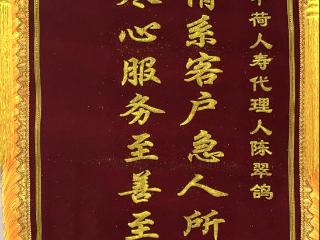 荷人寿代理人陈翠鸽
系客户急人所
心服务至善至